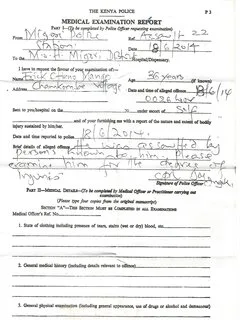 THE KENYA POLICE
P 3
MEDICAL EXAMINATION REPORT
PART I—(To be completed by Police Officer requesting examination)
From Migori Police Ref. Assault 22
Station Date 18/6/2014
To M.O.H Migori Hospital/Dispensary.
I have to request the favour of your examination of:—
Name Erick Age 36 years
Address Village
0026 hour
Sent to you/hospital on the under escort of Self
and of your furnishing me with a report of the nature and extent of bodily
injury sustained by him/her.
Date and time reported to police 18/6/2014.
Brief details of alleged offence He was assaulted by
persons known to him. Please
examine him for the degree of
injuries
Signature of Police Officer
PART II—MEDICAL DETAILS—(To be completed by Medical Officer or Practitioner carrying out
examination)
SECTION "A"—THIS SECTION MUST BE COMPLETED IN ALL EXAMINATIONS
Medical Officer's Ref. No.
1. State of clothing including presence of tears, stains (wet or dry) blood, etc.
2. General medical history (including details relevant to offence)
3. General physical examination (including general appearance, use of drugs or alcohol and demeanour)